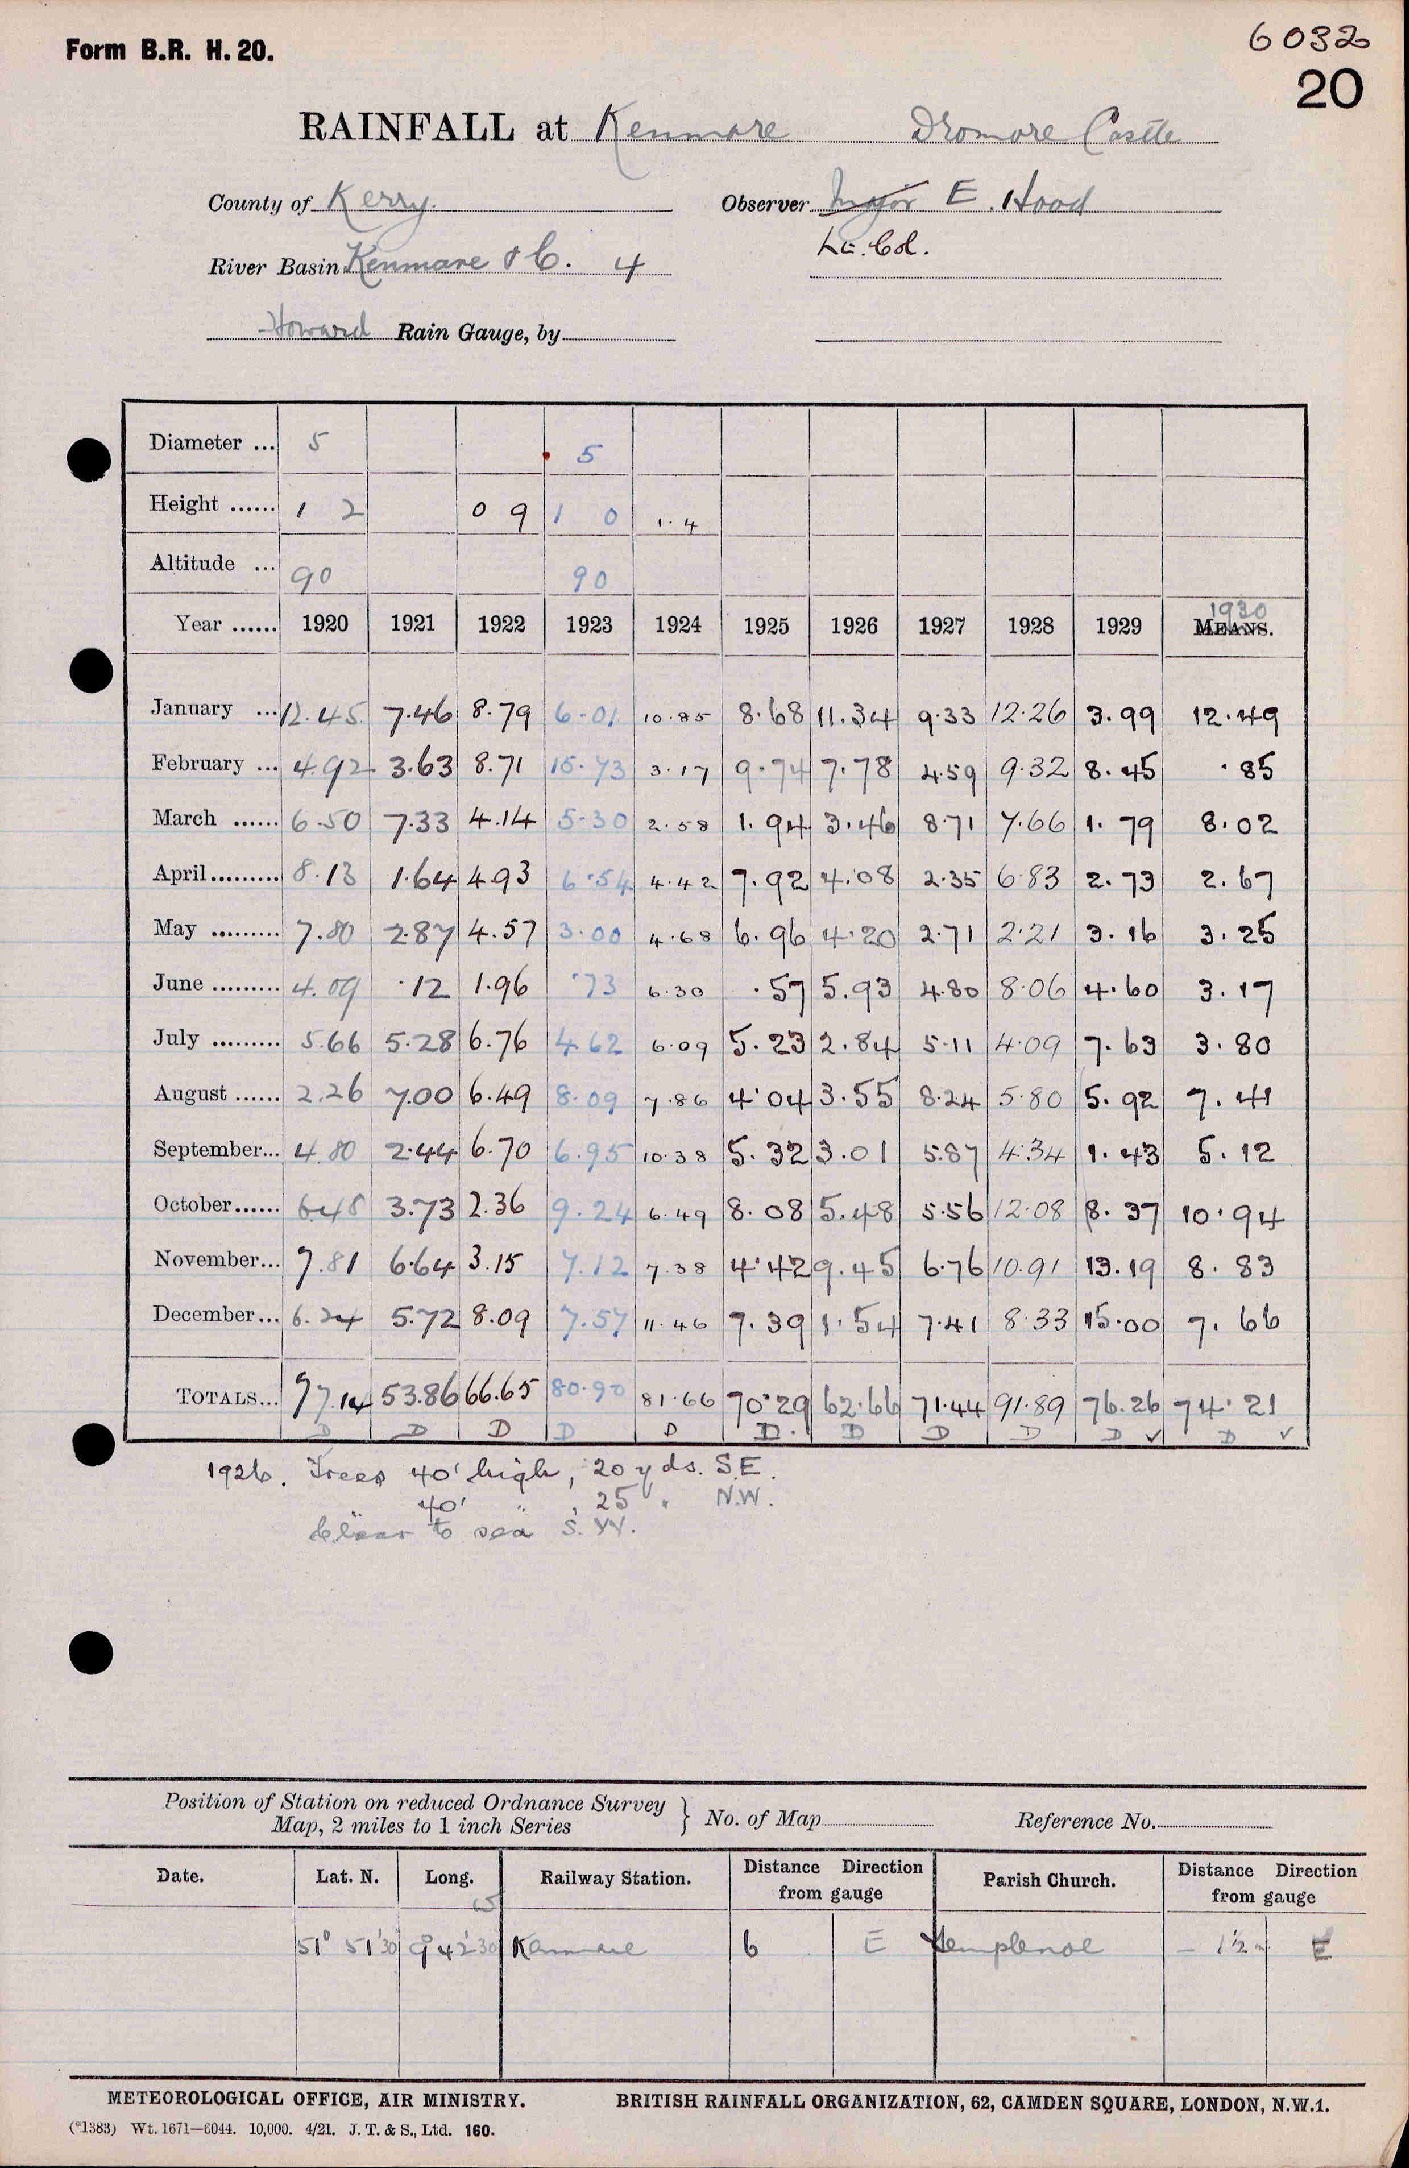 Form B.R. H. 20.
6032
20
RAINFALL at Kenmare Dromore Castle
County of Kerry. Observer Major E. Hood
Lt. Col.
River Basin Kenmare & C. 4
Howard Rain Gauge, by
Diameter ... 5 5
Height ...... 1 2 0 9 1 0 1.4
Altitude ... 90 90
1930
Year ...... 1920 1921 1922 1923 1924 1925 1926 1927 1928 1929 MEANS.
January ... 12.45 7.46 8.79 6.01 10.85 8.68 11.34 9.33 12.26 3.99 12.49
February ... 4.92 3.63 8.71 15.73 3.17 9.74 7.78 4.59 9.32 8.45 .85
March ...... 6.50 7.33 4.14 5.30 2.58 1.94 3.46 8.71 7.66 1.79 8.02
April......... 8.13 1.64 4.93 6.54 4.42 7.92 4.08 2.35 6.83 2.73 2.67
May ......... 7.80 2.87 4.57 3.00 4.68 6.96 4.20 2.71 2.21 3.16 3.25
June ......... 4.09 .12 1.96 .73 6.30 .57 5.93 4.80 8.06 4.60 3.17
July ......... 5.66 5.28 6.76 4.62 6.09 5.23 2.84 5.11 4.09 7.63 3.80
August ...... 2.26 7.00 6.49 8.09 7.86 4.04 3.55 8.24 5.80 5.92 7.41
September... 4.80 2.44 6.70 6.95 10.38 5.32 3.01 5.87 4.34 1.43 5.12
October...... 6.48 3.73 2.36 9.24 6.49 8.08 5.48 5.56 12.08 8.37 10.94
November... 7.81 6.64 3.15 7.12 7.38 4.42 9.45 6.76 10.91 13.19 8.83
December... 6.24 5.72 8.09 7.57 11.46 7.39 1.54 7.41 8.33 15.00 7.66
TOTALS... 77.14 53.86 66.65 80.90 81.66 70.29 62.66 71.44 91.89 76.26 74.21
D D D D D D. D D D D ✓ D ✓
1926. Trees 40' high, 20 yds. S.E.
40' " , 25 " N.W.
Clear to sea S.W.
Position of Station on reduced Ordnance Survey
Map, 2 miles to 1 inch Series } No. of Map Reference No.
Date. Lat. N. Long. W Railway Station. Distance Direction from gauge Parish Church. Distance Direction from gauge
51° 51'30 9° 42'30 Kenmare 6 E Templenoe – 1½ m E
METEOROLOGICAL OFFICE, AIR MINISTRY. BRITISH RAINFALL ORGANIZATION, 62, CAMDEN SQUARE, LONDON, N.W.1.
(*1383) Wt. 1671—6044. 10,000. 4/21. J. T. & S., Ltd. 160.